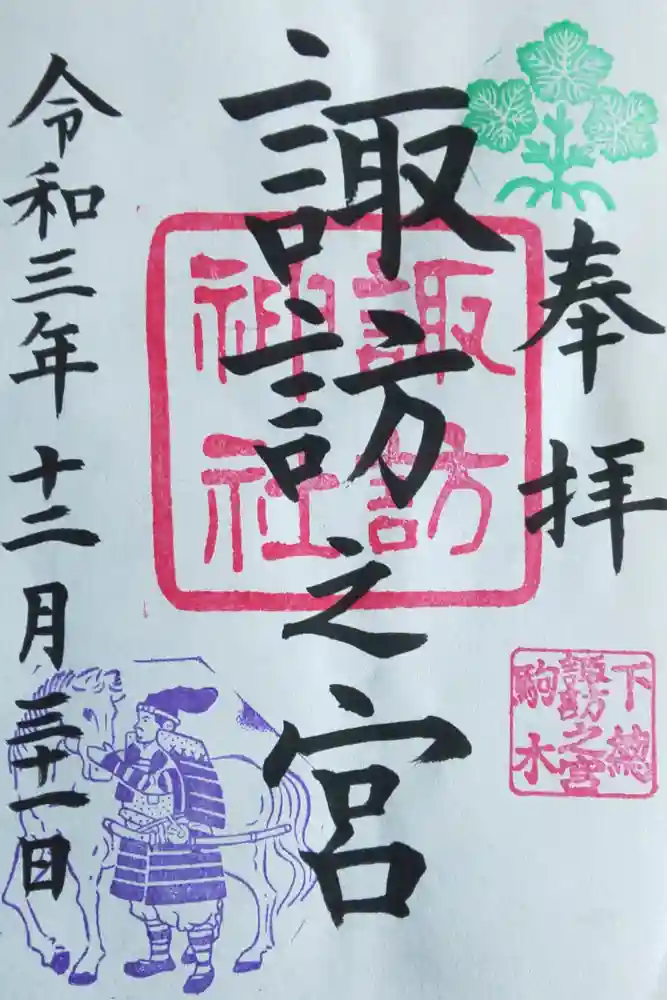 奉拝
諏訪之宮
諏訪
神社
下總
諏訪之宮
駒木
令和三年十二月三十一日